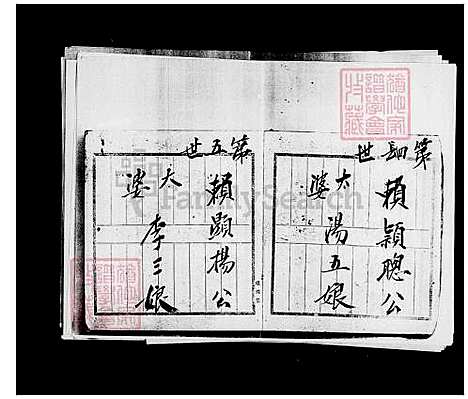 第四世
賴穎聰公
大婆 湯五娘
第五世
賴顯揚公
大婆 李三娘
FamilySearch